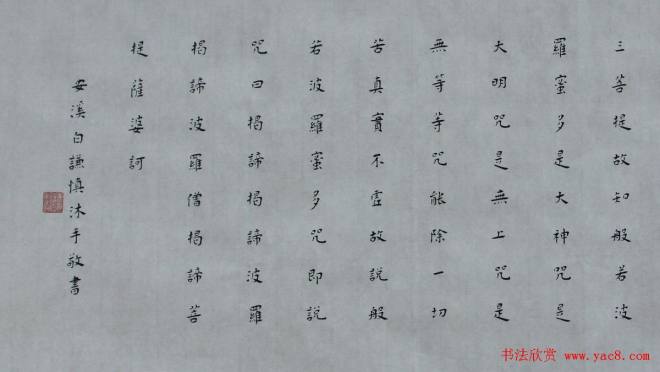 三菩提故知般若波
羅蜜多是大神咒是
大明咒是無上咒是
無等等咒能除一切
苦真實不虛故說般
若波羅蜜多咒即說
咒曰揭諦揭諦波羅
揭諦波羅僧揭諦菩
提薩婆訶
安溪白謙慎沐手敬書
书法欣赏 www.yac8.com